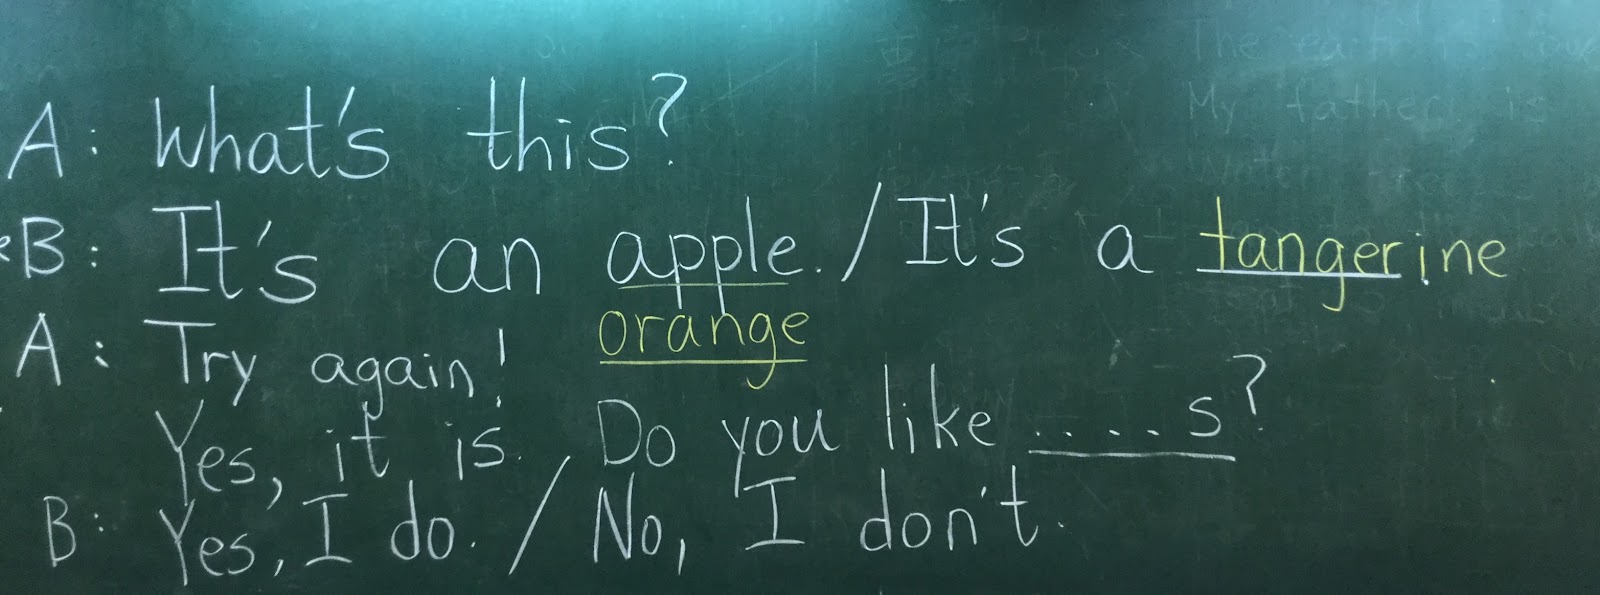 The earth is
My father is
A: What's this?
B: It's an apple. / It's a tangerine
orange
A: Try again!
Yes, it is. Do you like ....s?
B: Yes, I do. / No, I don't.